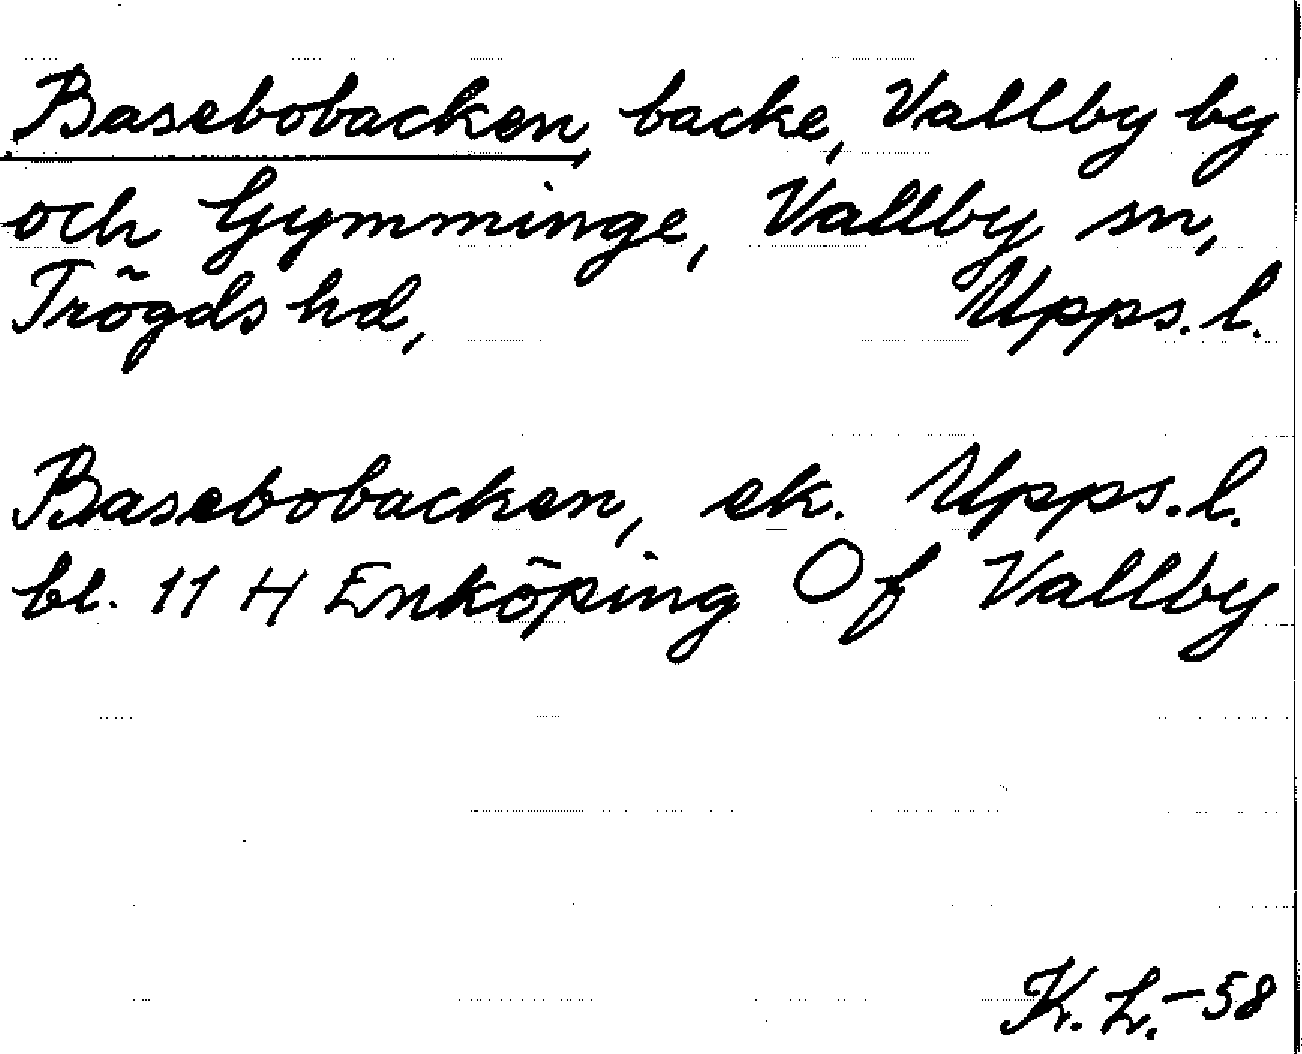 Basebobacken, backe, Vallby by
och Gymminge, Vallby sn,
Trögds hd, Upps. l.
Basebobacken, ek. Upps. l.
bl. 11 H Enköping Of Vallby
K. L. -58